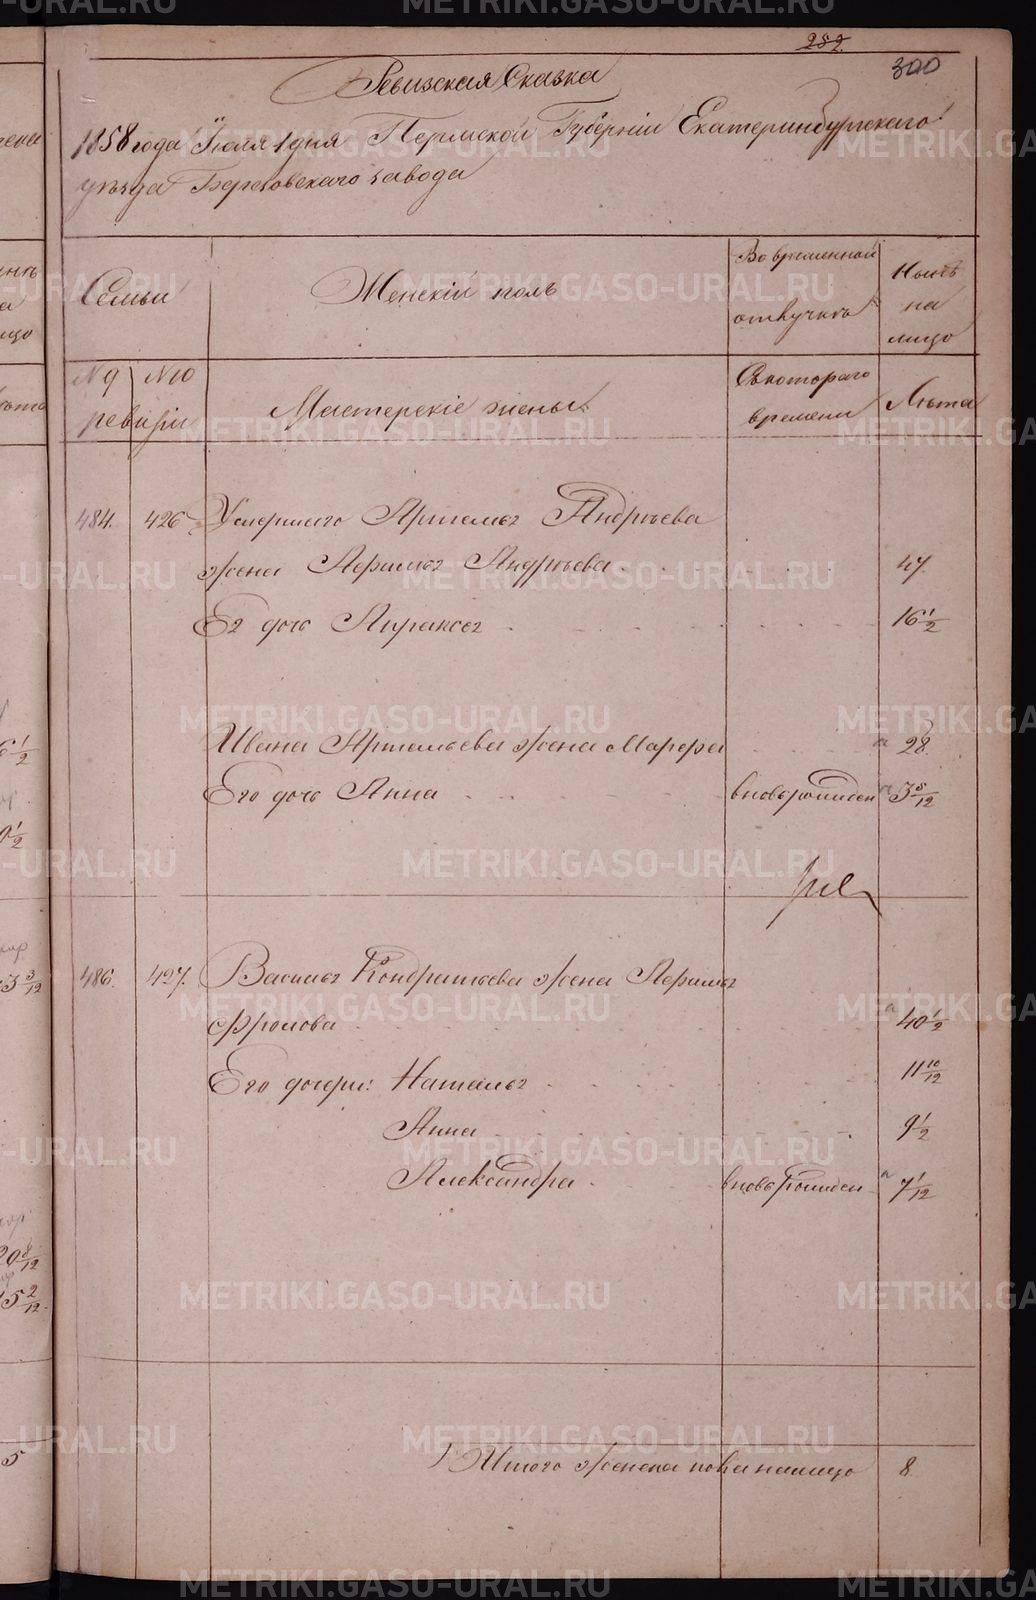 282
300
Ревизская Сказка
1858 года Июля 1 дня Пермской Губерніи Екатеринбургскаго
уѣзда Березовскаго завода
Семьи
Женскій полъ
Во временной
отлучкѣ
Нынѣ
на
лицо
№ 9
№ 10
ревизіи
Мастерскіе жены
Съ котораго
времени
Лѣта
484. 426 Умершаго Артемья Андрѣева
жена Афимья Андрѣева 47.
Ея дочь Апраксея 16 1/2
Ивана Артемьева жена Марфа 28.
Его дочь Анна вновьрожден 3 8/12
486. 427. Василья Кондратьева жена Афимья
Фролова 40 1/2
Его дочери: Наталья 11 10/12
Анна 9 1/2
Александра вновьрожден 7 1/12
Итого женска пола налицо 8.
METRIKI.GASO-URAL.RU